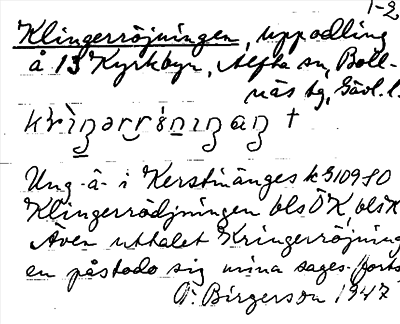 1-2
Klingerröjningen, uppodling
å 13 Kyrkbyn, Alfta sn, Boll-
näs tg, Gävl. l.
†
Ung-å- i Kerstinänges
Klingerrödjningen bls ÖK,
Även uttalet Kringerröjning
en påstods sig mina sages-
P. Birgerson 1947